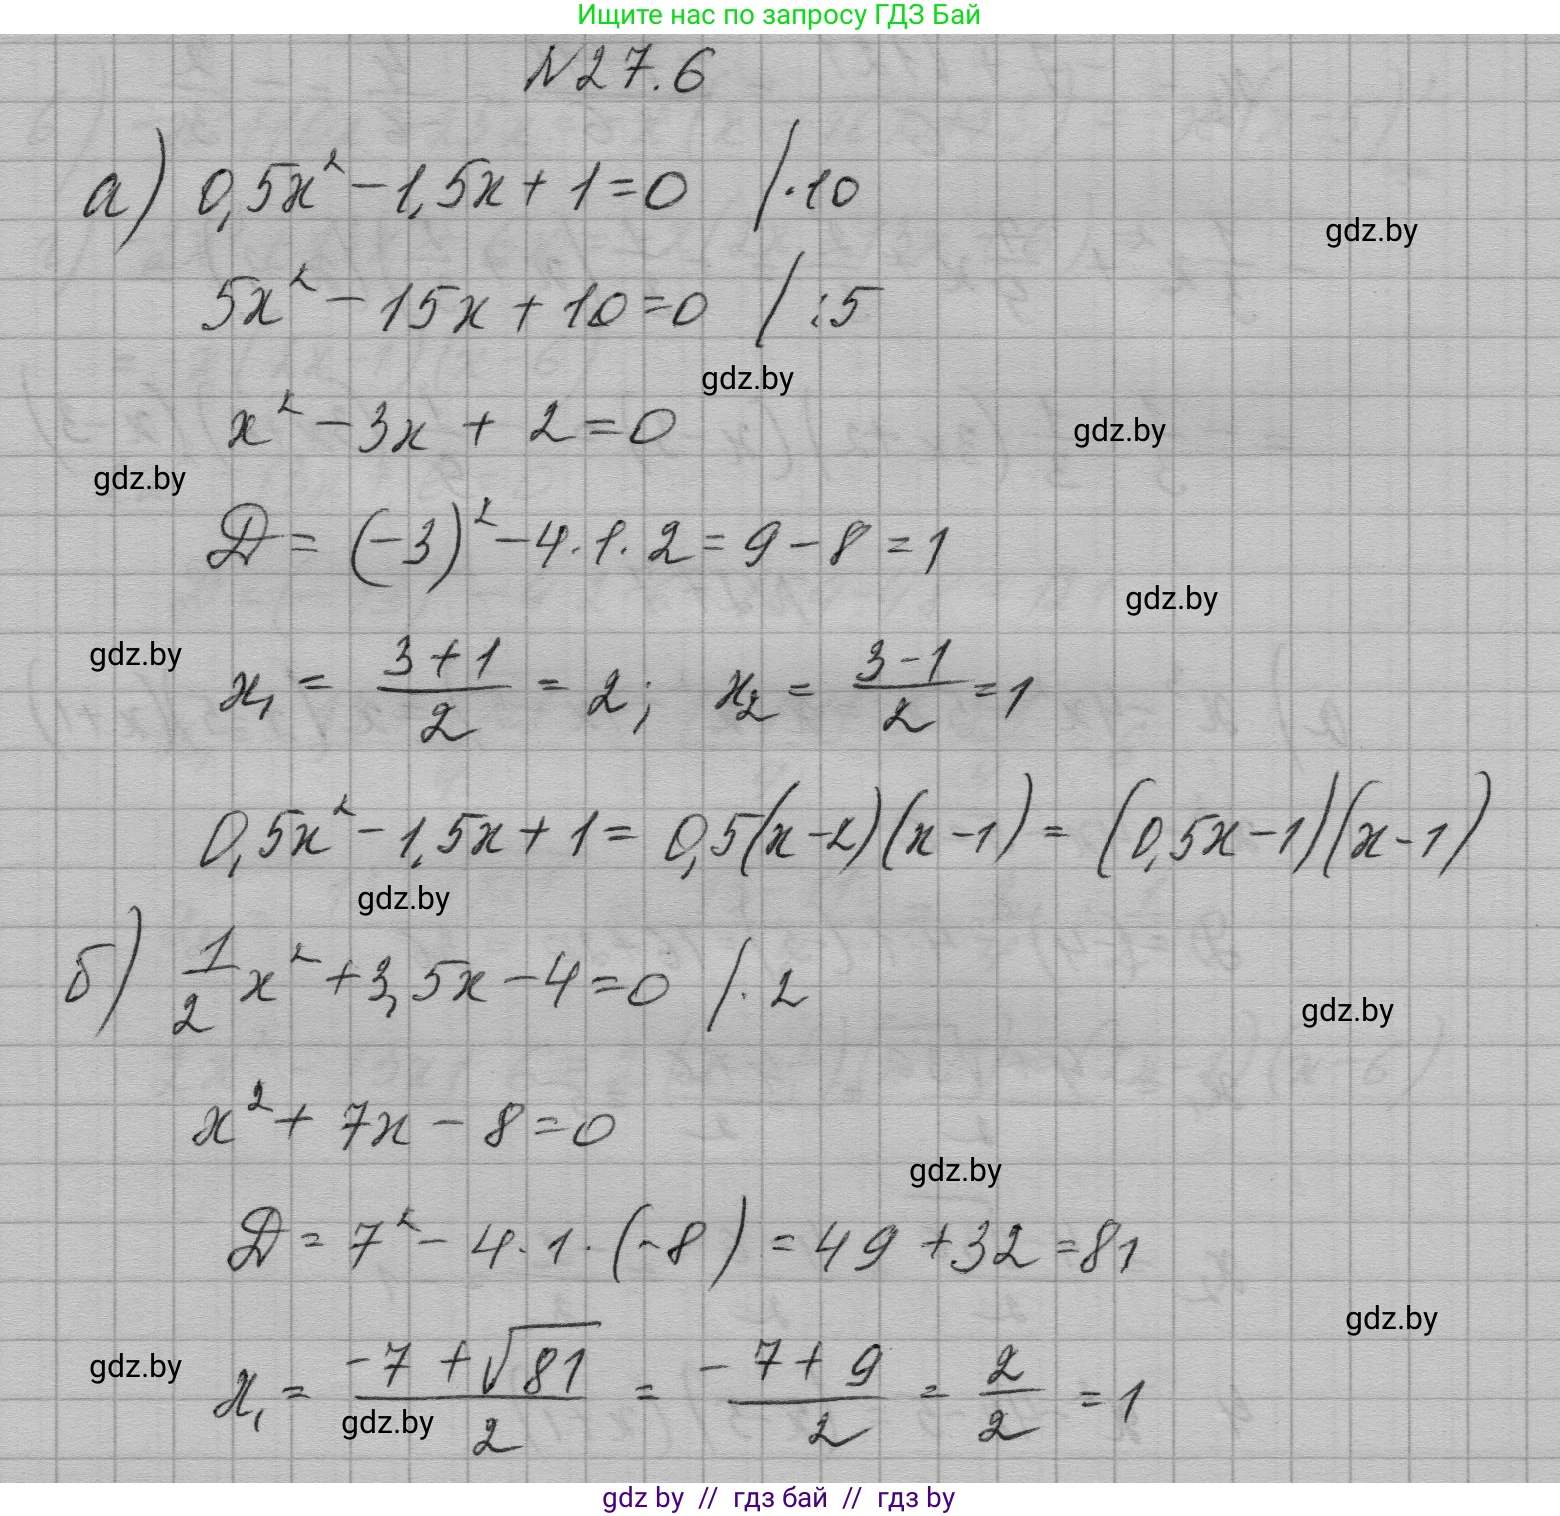 Ищите нас по запросу ГДЗ Бай
№27.6
а) 0,5x² - 1,5x + 1 = 0 / ·10
gdz.by
5x² - 15x + 10 = 0 / :5
gdz.by
x² - 3x + 2 = 0
gdz.by
gdz.by
D = (-3)² - 4·1·2 = 9 - 8 = 1
gdz.by
gdz.by
x₁ = (3+1)/2 = 2; x₂ = (3-1)/2 = 1
0,5x² - 1,5x + 1 = 0,5(x-2)(x-1) = (0,5x-1)(x-1)
gdz.by
б) 1/2 x² + 3,5x - 4 = 0 / ·2
gdz.by
x² + 7x - 8 = 0
gdz.by
D = 7² - 4·1·(-8) = 49 + 32 = 81
gdz.by
gdz.by
x₁ = (-7 + √81)/2 = (-7 + 9)/2 = 2/2 = 1
gdz.by
gdz by // гдз бай // gdz by